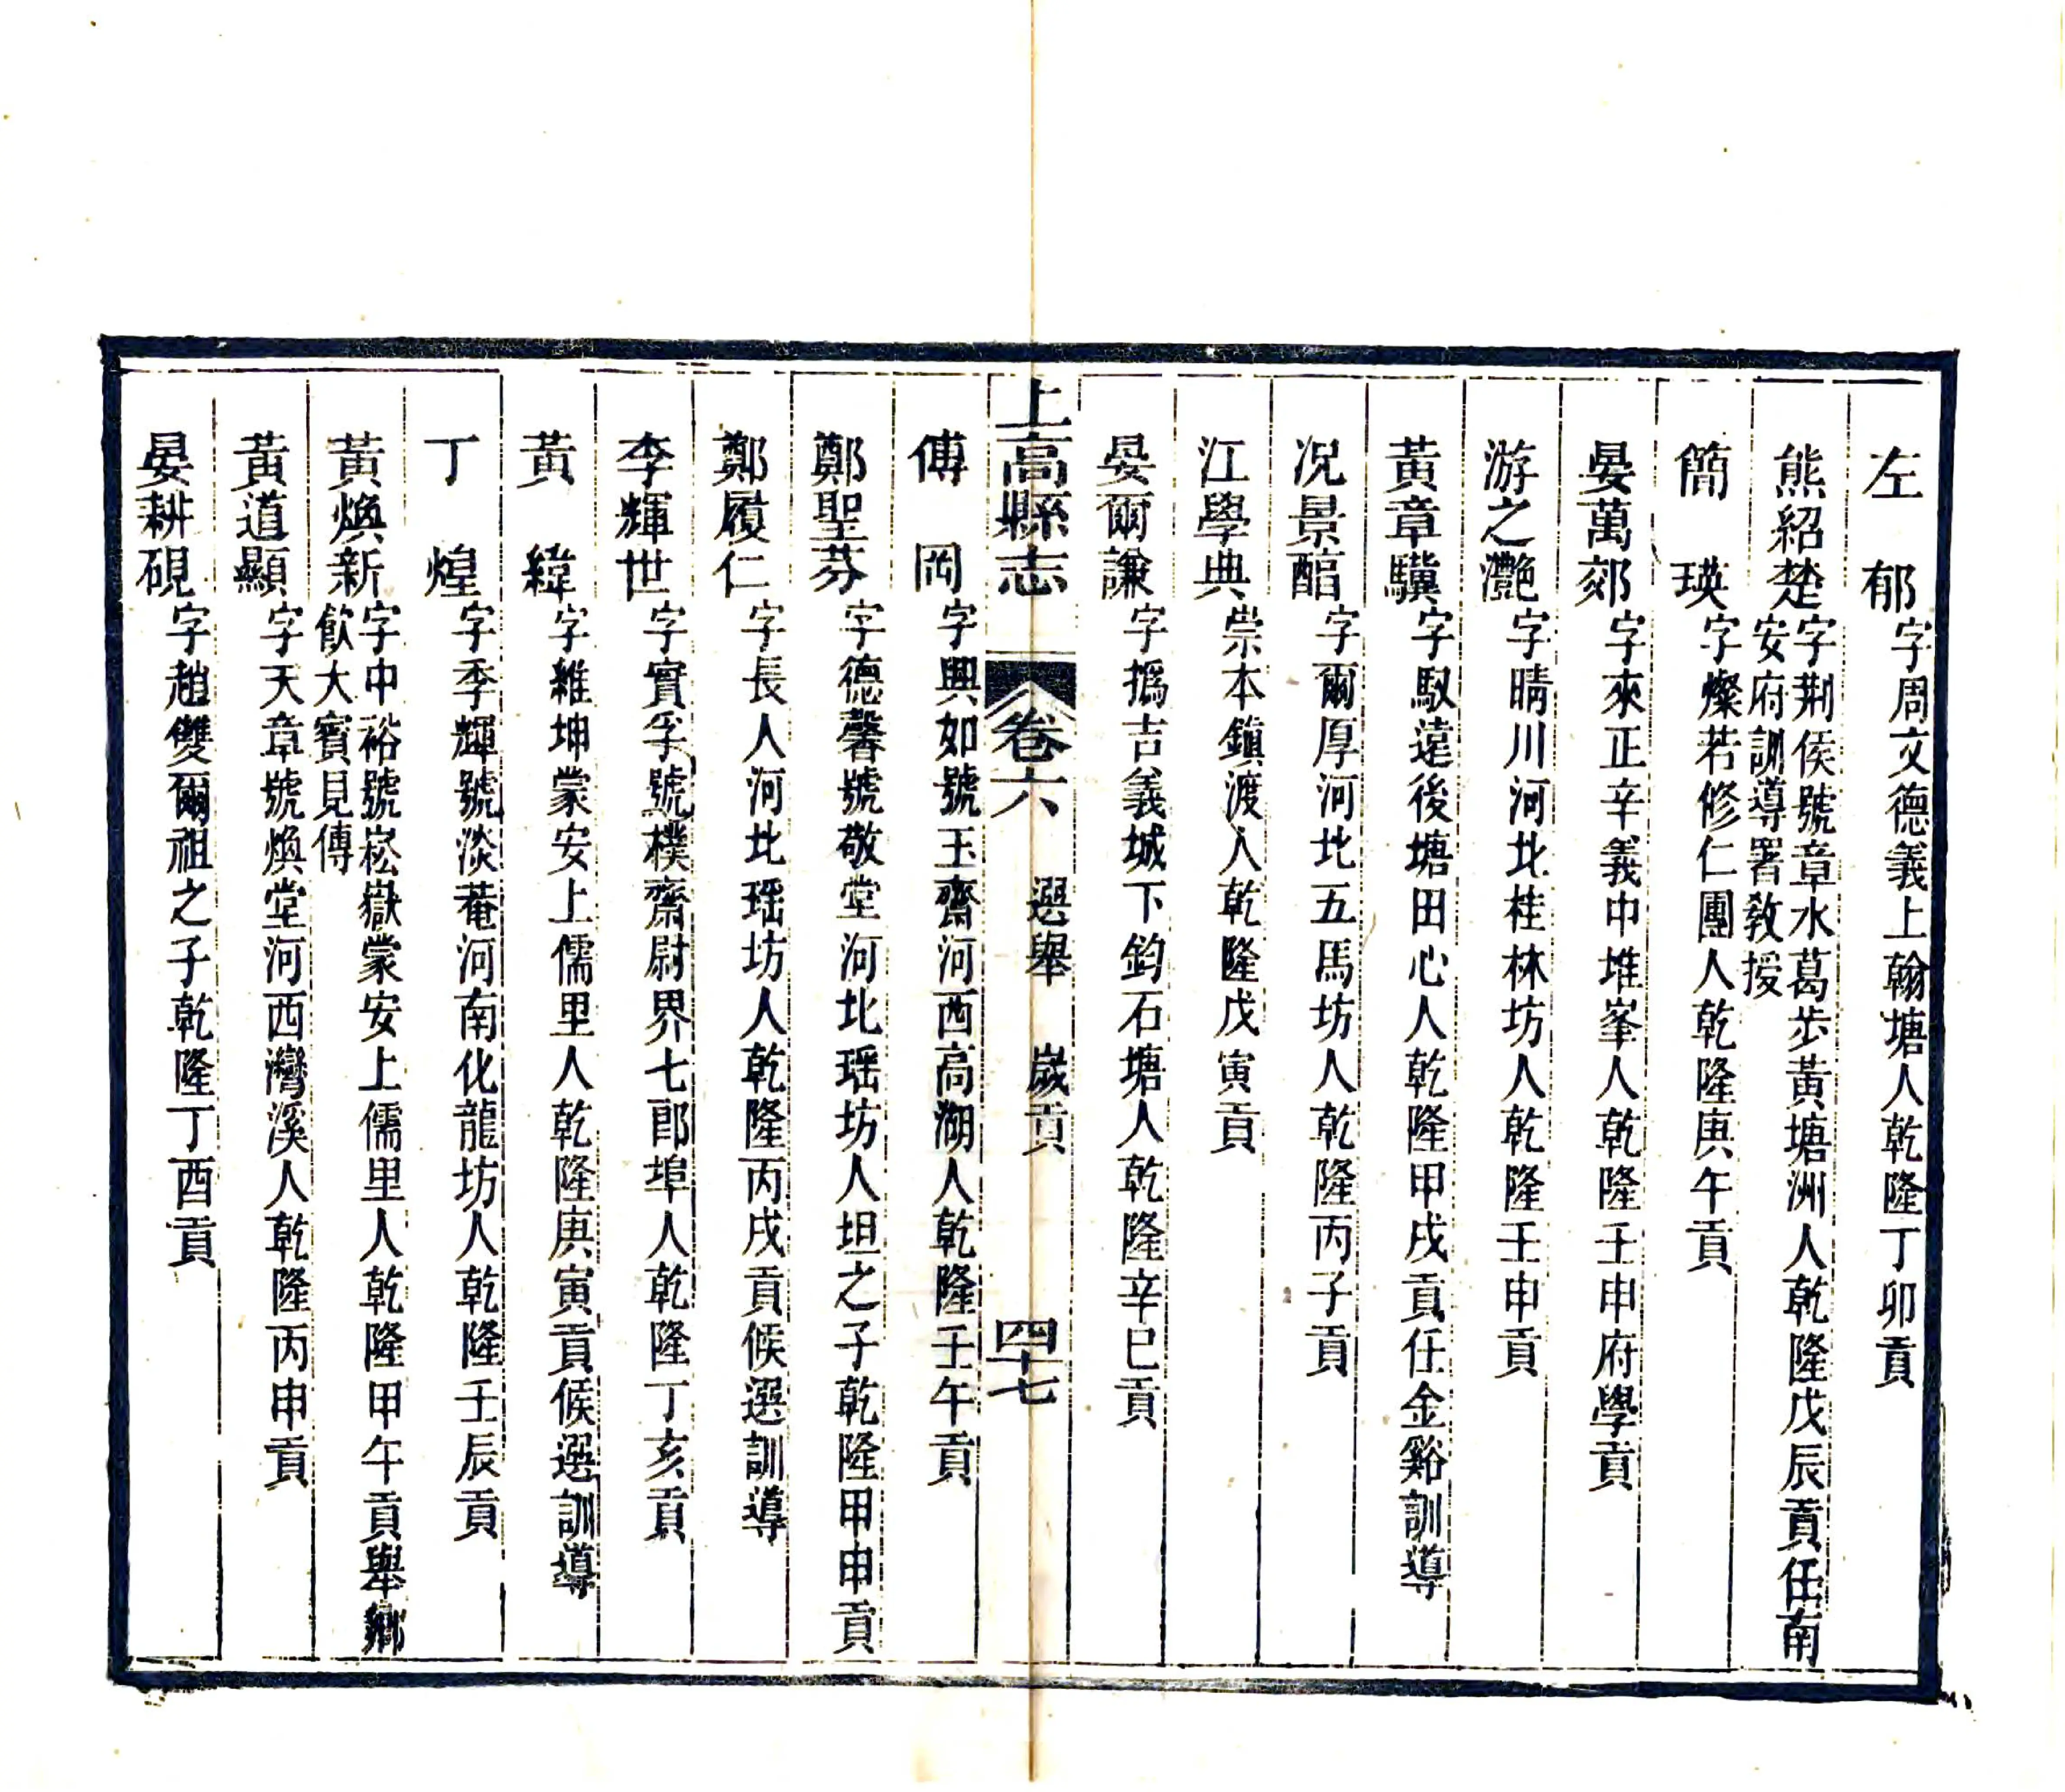 左　郁字周文德義上翰塘人乾隆丁卯貢
熊紹楚字荆侯號章水葛步黃塘洲人乾隆戊辰貢任南
安府訓導署敎授
簡　瑛字燦若修仁團人乾隆庚午貢
晏萬郊字來正辛義中堆峯人乾隆壬申府學貢
游之灔字晴川河北桂林坊人乾隆壬申貢
黃章驥字馭遠後塘田心人乾隆甲戌貢任金谿訓導
况景醕字爾厚河北五馬坊人乾隆丙子貢
江學典崇本鎮渡人乾隆戊寅貢
晏爾謙字撝吉義城下鈞石塘人乾隆辛巳貢
上高縣志　卷六　選舉　歲貢　四十七
傅　岡字興如號玉齋河西高湖人乾隆壬午貢
鄭聖芬字德馨號敬堂河北瑶坊人坦之子乾隆甲申貢
鄭履仁字長人河北瑶坊人乾隆丙戌貢候選訓導
李輝世字實孚號樸齋尉界七郎埠人乾隆丁亥貢
黃　緯字維坤蒙安上儒里人乾隆庚寅貢候選訓導
丁　煌字季輝號淡菴河南化龍坊人乾隆壬辰貢
黃煥新字中裕號崧嶽蒙安上儒里人乾隆甲午貢舉鄉
飲大賓見傳
黃道顯字天章號煥堂河西灣溪人乾隆丙申貢
晏耕硯字趙雙爾祖之子乾隆丁酉貢